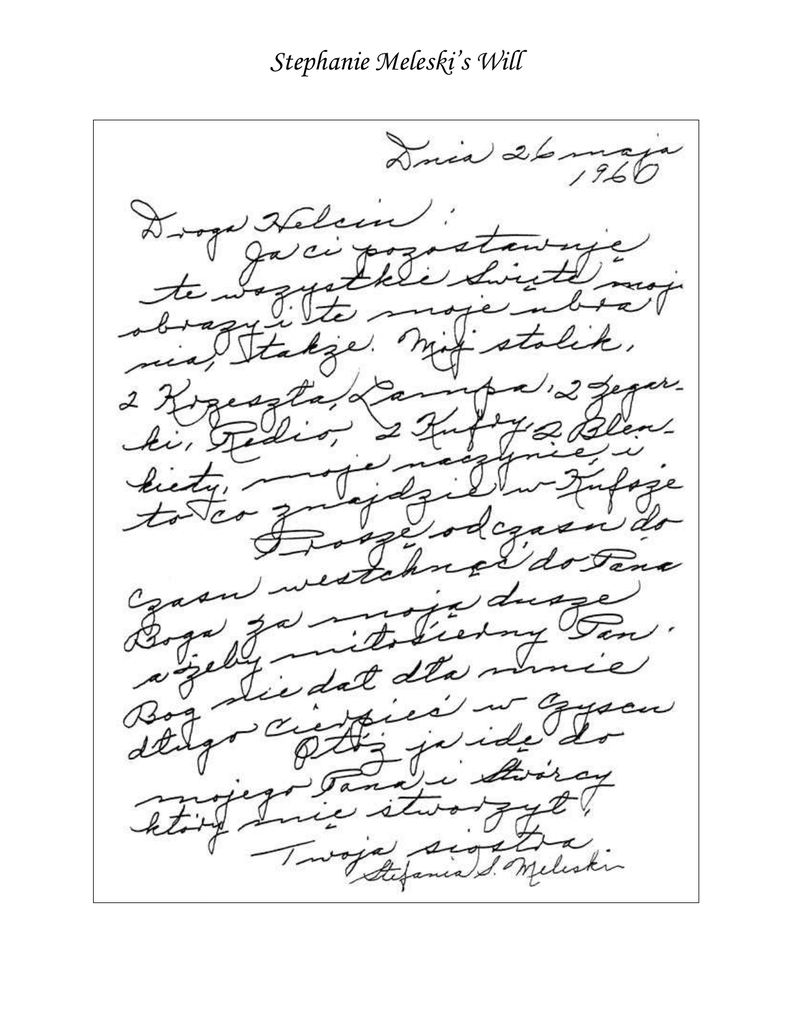 Stephanie Meleski's Will
Dnia 26 maja
1960
Droga Helciu :
Ja ci pozostawuję
te wszystkie święte moje
obrazy i te moje ubra
nia, także. Mój stolik,
2 Krzeszta, Lampa, 2 zegar-
ki, Redio, 2 Kufry, 2 Blen-
kiety, moje naczynie, i
to co znajdzie w Kufsze
Proszę od czasu do
czasu westchnąć do Pana
Boga za moją dusze
a żeby miłosierny Pan
Bog nie dat dla mnie
długo cierpieć w czyscu
Otóż ja idę do
mojego Pana i Stwórcy
który mię stworzyt,
Twoja siostra.
Stefania S. Meleski